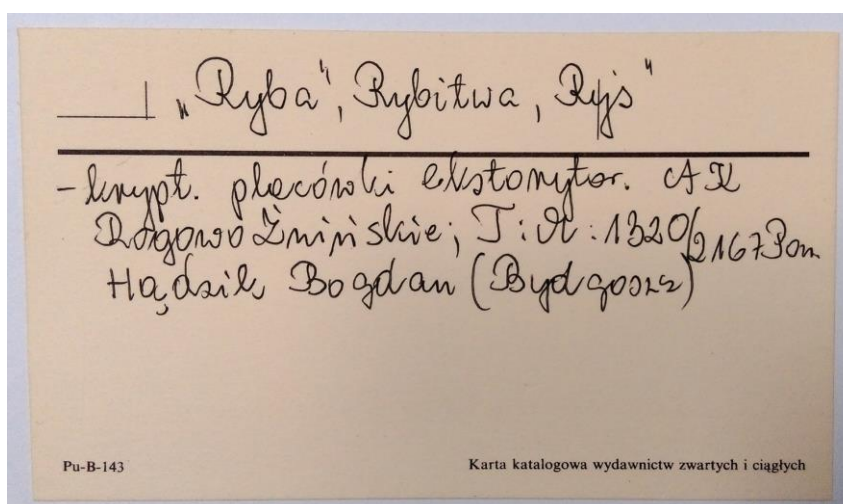 „Ryba", Rybitwa, Ryjs"
- krypt. placówki eksterytor. AK
Rogowo Żnińskie; T: A: 1320/2167 Pom
Hądzik Bogdan (Bydgoszcz)
Pu-B-143
Karta katalogowa wydawnictw zwartych i ciągłych